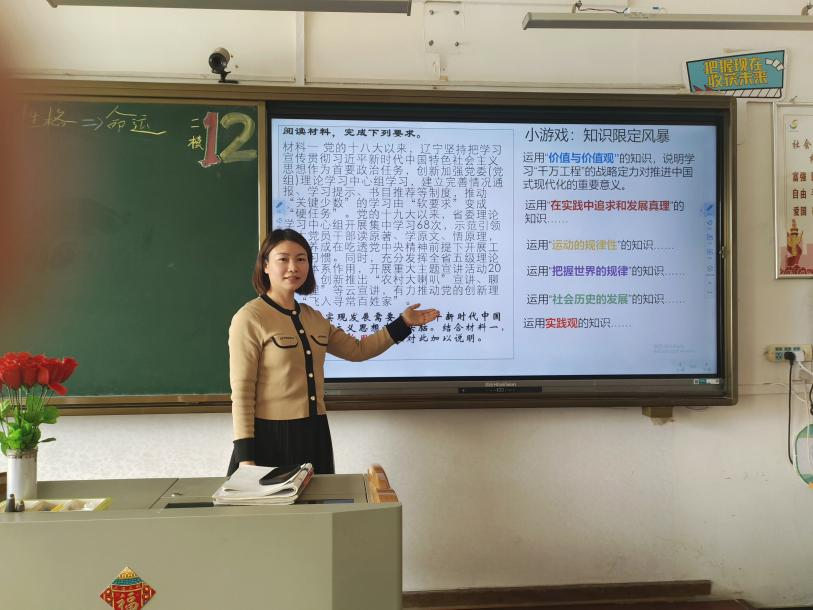 性格⇒命运
二模
12
阅读材料，完成下列要求。
材料一 党的十八大以来，辽宁坚持把学习
宣传贯彻习近平新时代中国特色社会主义
思想作为首要政治任务，创新加强党委(党
组)理论学习中心组学习，建立完善情况通
报、学习提示、书目推荐等制度，推动
“关键少数”的学习由“软要求”变成
“硬任务”。党的十九大以来，省委理论
学习中心组开展集中学习68次，示范引领
党员干部读原著、学原文、悟原理，
养成在吃透党中央精神前提下开展工
习惯。同时，充分发挥全省五级理论
体系作用，开展重大主题宣讲活动20
创新推出“农村大喇叭”宣讲、聊
等云宣讲，有力推动党的创新理
“飞入寻常百姓家”。
实现发展需要
新时代中国
义思想
结合材料一，
对此加以说明。
小游戏：知识限定风暴
运用“价值与价值观”的知识，说明学
习“千万工程”的战略定力对推进中国
式现代化的重要意义。
运用“在实践中追求和发展真理”的
知识……
运用“运动的规律性”的知识……
运用“把握世界的规律”的知识……
运用“社会历史的发展”的知识……
运用实践观的知识……
把握现在
收获未来
社会
富强
自由
爱国
福